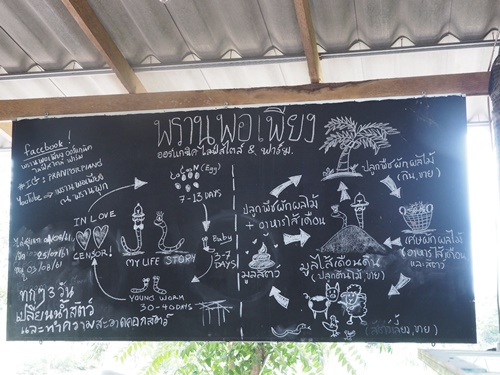 พรานพอเพียง
ออร์แกนิค ไลฟ์สไตล์ & ฟาร์ม.
facebook :
พรานพอเพียง ออร์แกนิค
ไลฟ์สไตล์ ฟาร์ม
YouTube => พรานพอเพียง
COCOON (Egg)
7-13 DAYS
Baby
3-7
DAYS
YOUNG WORM
30-40 DAYS
IN LOVE
CENSOR!
MY LIFE STORY
ทุกๆ 3 วัน
เปลี่ยนน้ำสัตว์
และทำความสะอาดคอกสัตว์
ปลูกพืชผักผลไม้
(กิน, ขาย)
ปลูกพืชผักผลไม้
+ อาหารไส้เดือน
เศษผักผลไม้
อาหารไส้เดือน
และสัตว์
มูลไส้เดือนดิน
มูลสัตว์